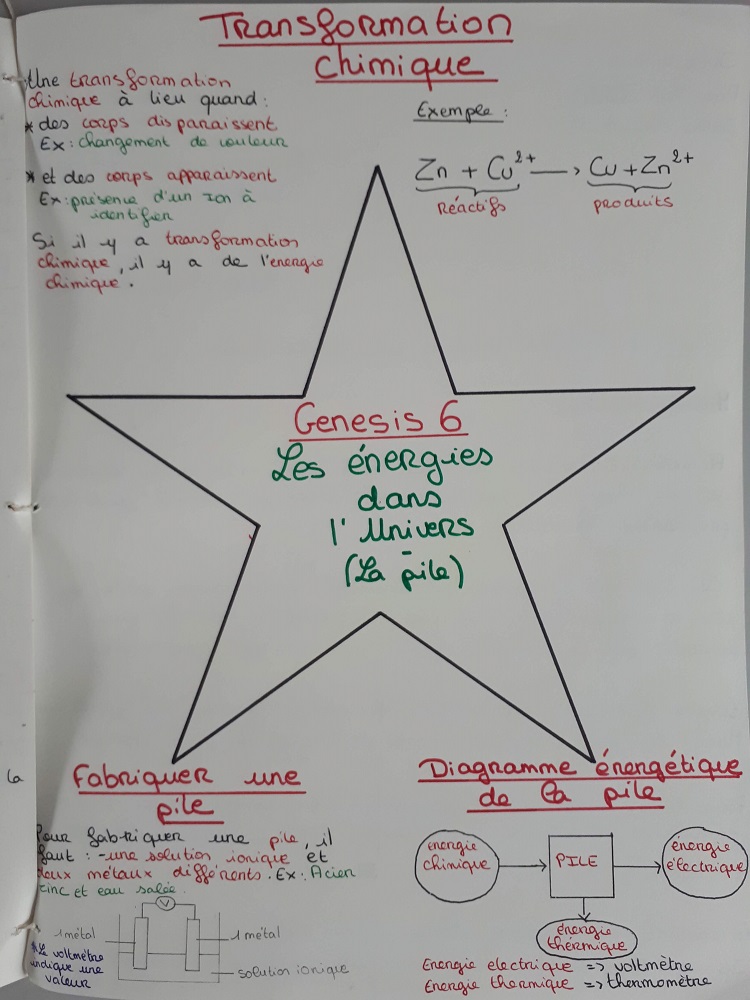 Transformation
chimique
Une transformation
chimique à lieu quand :
* des corps disparaissent
Ex : changement de couleur
* et des corps apparaissent
Ex : présence d'un ion à
identifier
Si il y a transformation
chimique, il y a de l'énergie
chimique.
Exemple :
Zn + Cu²⁺ → Cu + Zn²⁺
Réactifs
produits
Genesis 6
Les énergies
dans
l'Univers
-
(La pile)
La
Fabriquer une
pile
Pour fabriquer une pile, il
faut : - une solution ionique et
deux métaux différents. Ex : Acier
zinc et eau salée.
V
1 métal
1 métal
solution ionique
* Le voltmètre
indique une
valeur
Diagramme énergétique
de la pile
énergie
chimique
PILE
énergie
électrique
énergie
thérmique
Energie electrique => voltmètre
Energie thermique => thermomètre